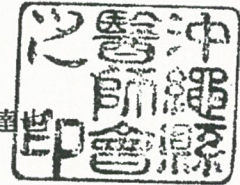 沖繩縣
醫師會
之印